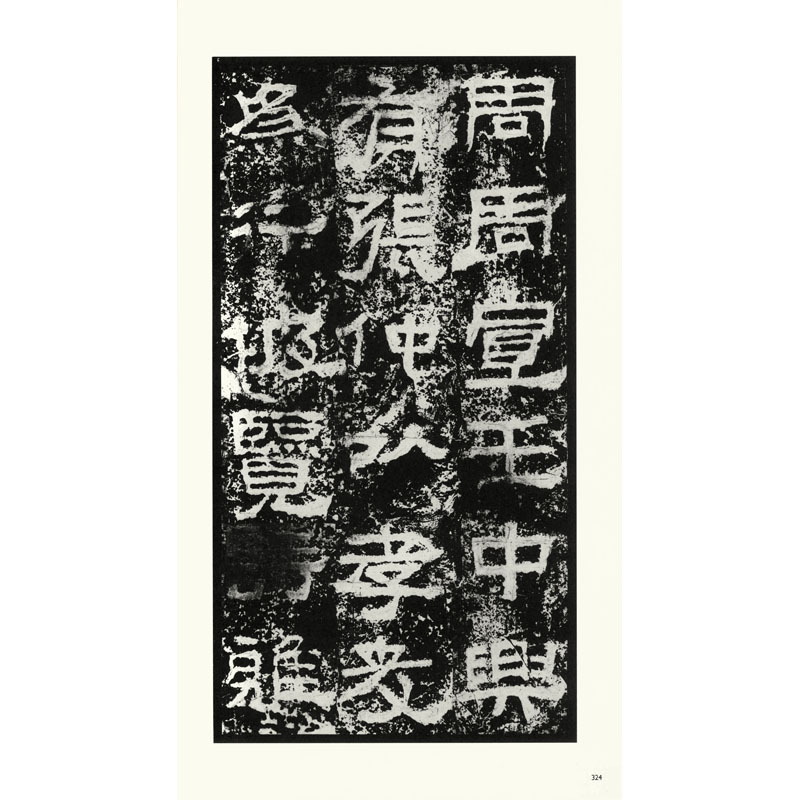 周周宣王中興
有張仲以孝友
為行披覽詩雅
324